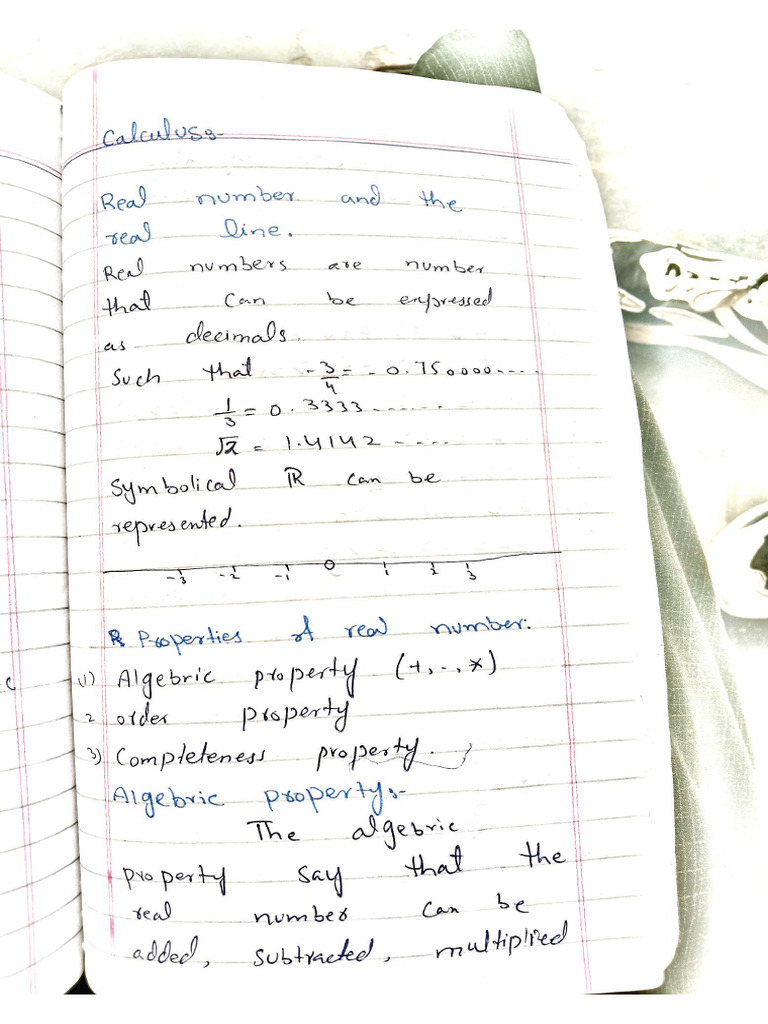 Calculus:-
Real number and the
real line.
Real numbers are number
that can be expressed
as decimals.
Such that -3/4 = -0.750000....
1/3 = 0.3333.......
√2 = 1.4142 -....
Symbolical ℝ can be
represented.
-3 -2 -1 0 1 2 3
Properties of real number:
(1) Algebric property (+, -, *)
2 order property
3) Completeness property.
Algebric property:-
The algebric
property say that the
real number can be
added, subtracted, multiplied
c